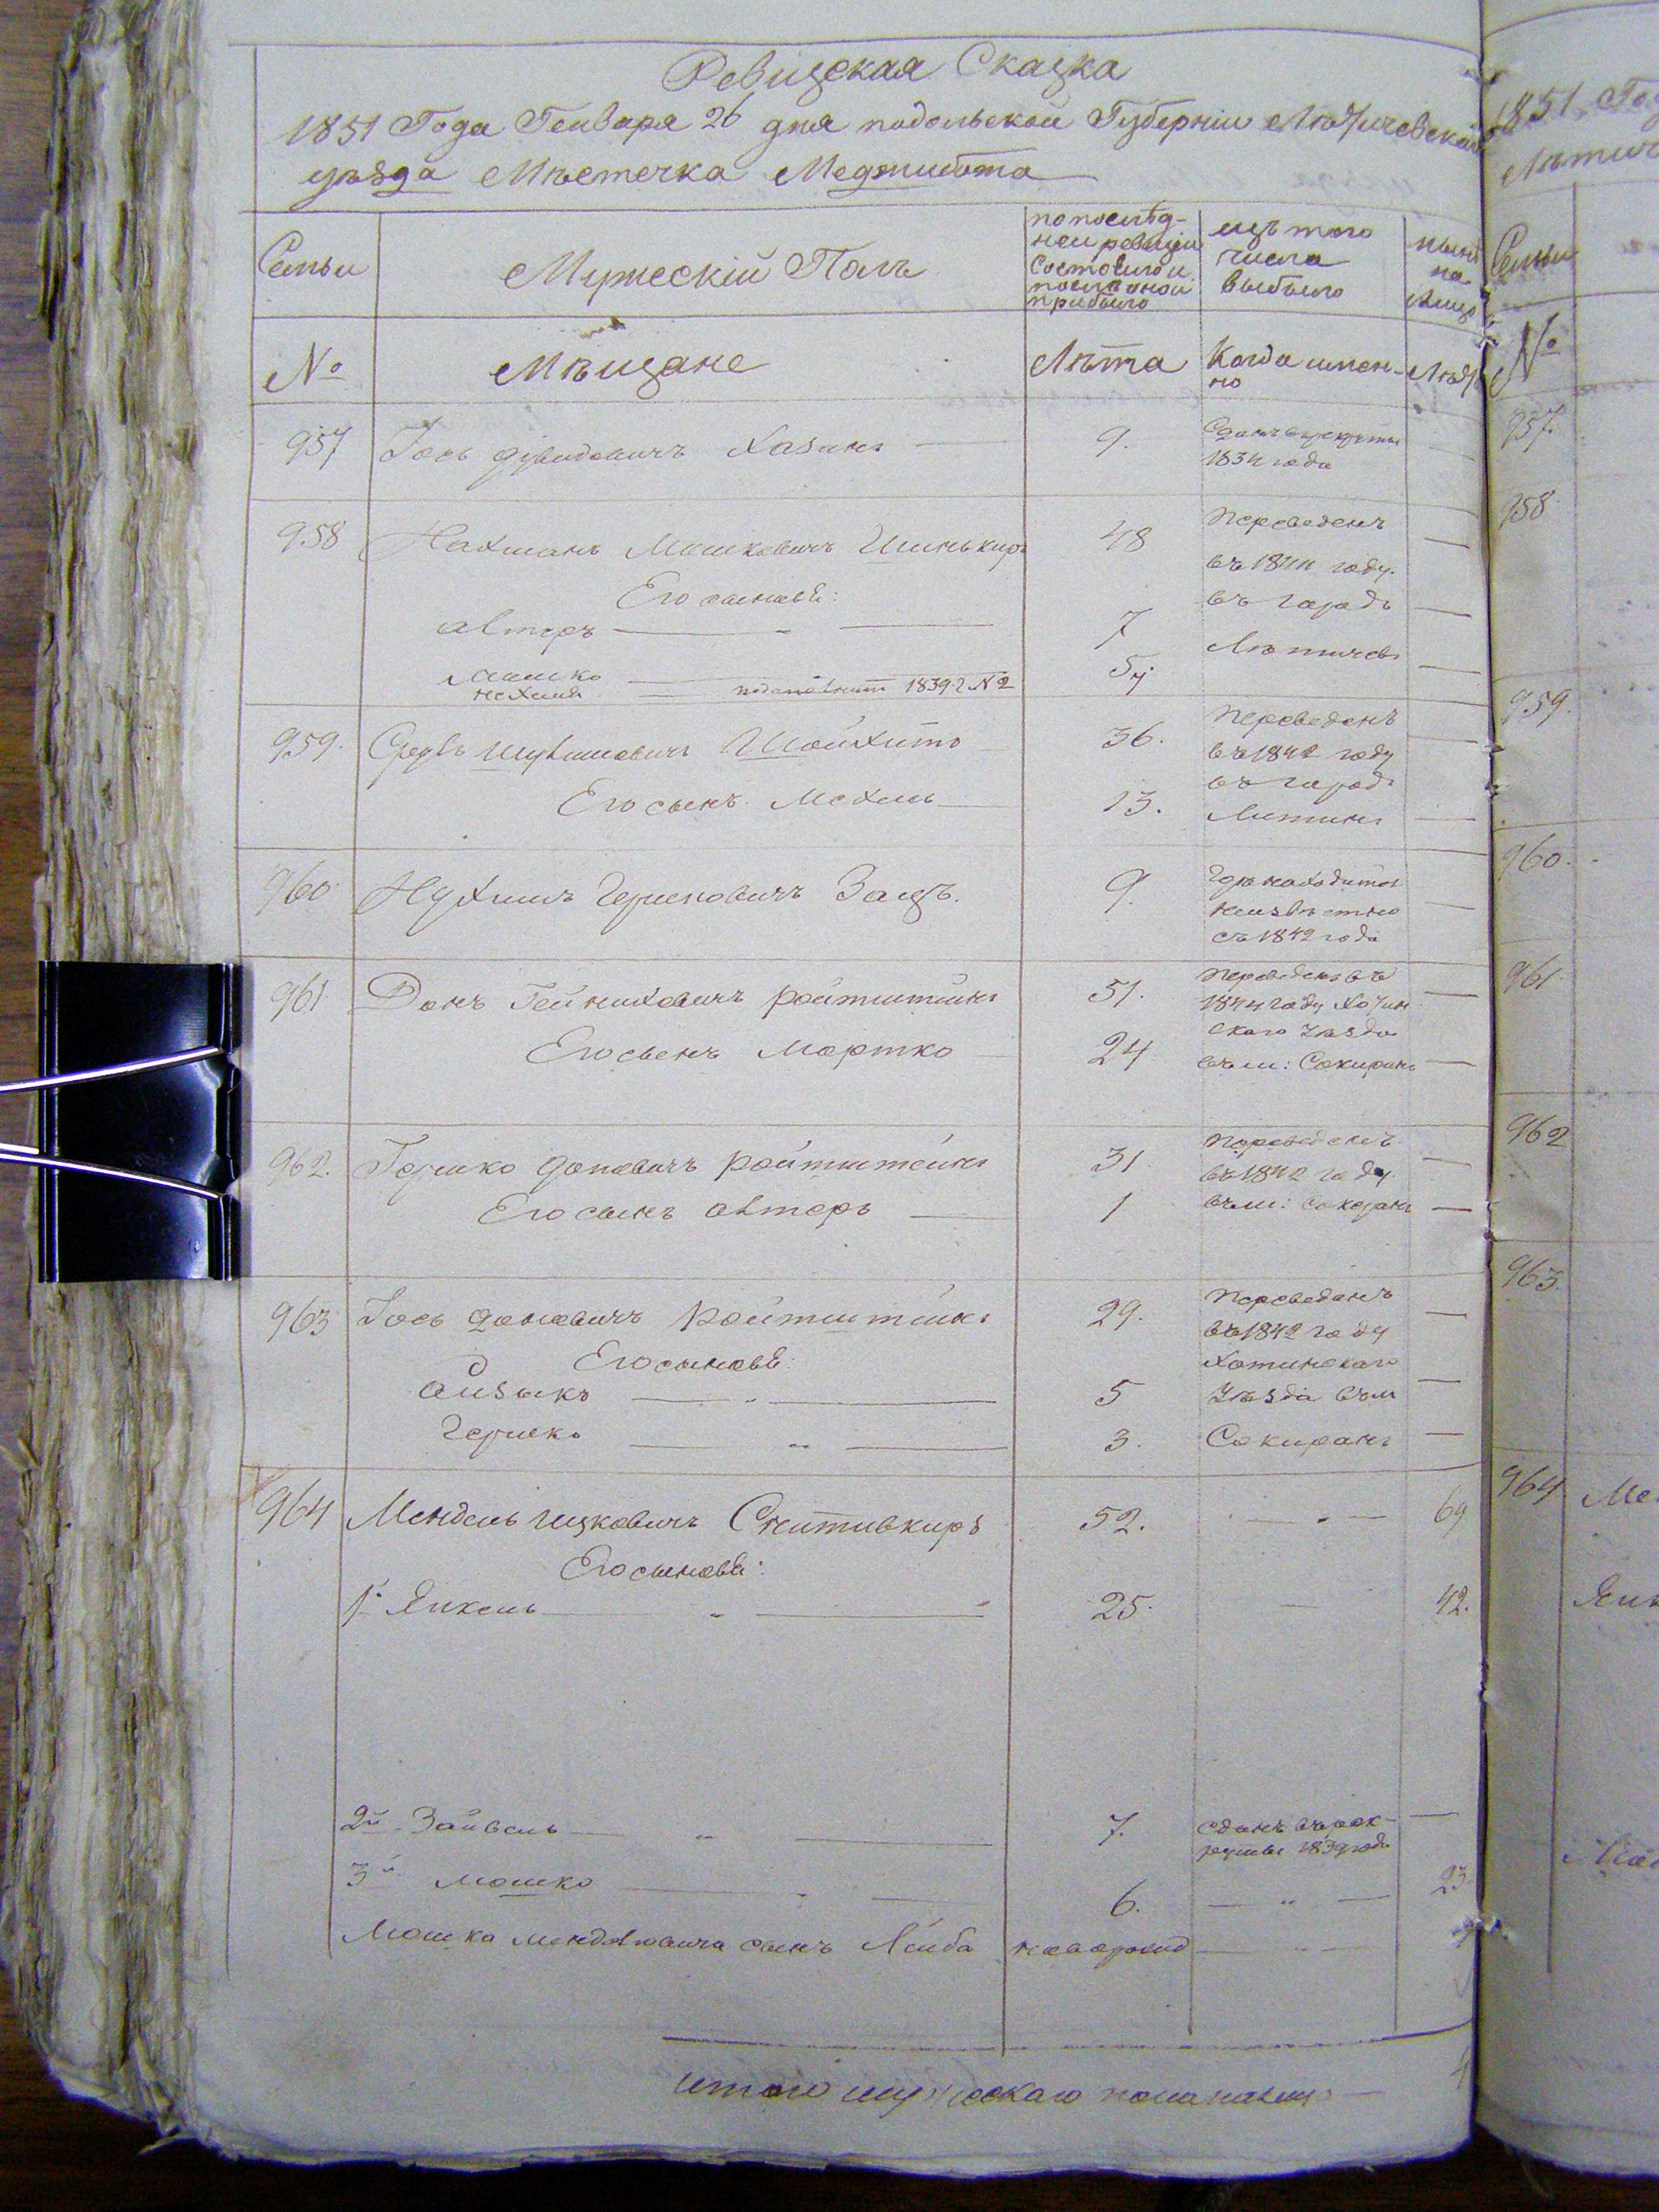 Ревизская Сказка
1851 Года Генваря 26 дня подольской Губерніи Летичевскаго
уѣзда Мѣстечка Меджибожа
Семьи
Мужескій Полъ
по послѣд-
ней ревизіи
состояло и
послѣ оной
прибыло
изъ того
числа
выбыло
нынѣ
на
лицо
№
Мѣщане
Лѣта
Когда имен-
но
Лѣта
957 Іось Хазинъ 9. Сданъ в рекруты
1834 года
958 Нахманъ Мошковичъ 48 Переведенъ
въ 1844 году.
Его сыновья: въ городъ
Автеръ 7 Летичевъ
Мошко 5
нехиля 1839 г № 2
959. Сруль 36. Переведенъ
въ 1842 году
въ городъ
Его сынъ Мехель 13. Литинъ
960 Нухимъ Гершковичъ Зацъ. 9. Где находится
неизвѣстно
съ 1842 года
961 Донъ Гейниховичъ Ройтштейнъ 51. Переведенъ въ
1844 году Хотин
скаго уѣзда
Его сынъ Мортко 24 въ м: Сокиранъ
962. Гершко Доновичъ Ройтштейнъ 31 Переведенъ
въ 1842 году
Его сынъ Автеръ 1 въ м: Сокиранъ
963 Іось Доновичъ Ройтштейнъ 29. Переведенъ
въ 1842 году
Его сыновья: Хотинскаго
Айзыкъ 5 Уѣзда въ м
Гершко 3. Сокиранъ
964 Мендель Ицковичъ Скитивкиръ 52. 69
Его сыновья:
1й Янкель 25. 42.
2й Зайвель 7. сданъ въ рек-
руты 1839 года
3й Мошко 6. 23
Мошка Менделовича сынъ Лейба новорожд
итого мужескаго пола налицо
1851 Год
Летич
Семьи
№
957.
958
959.
960.
961
962
963
964 Ме
Янк